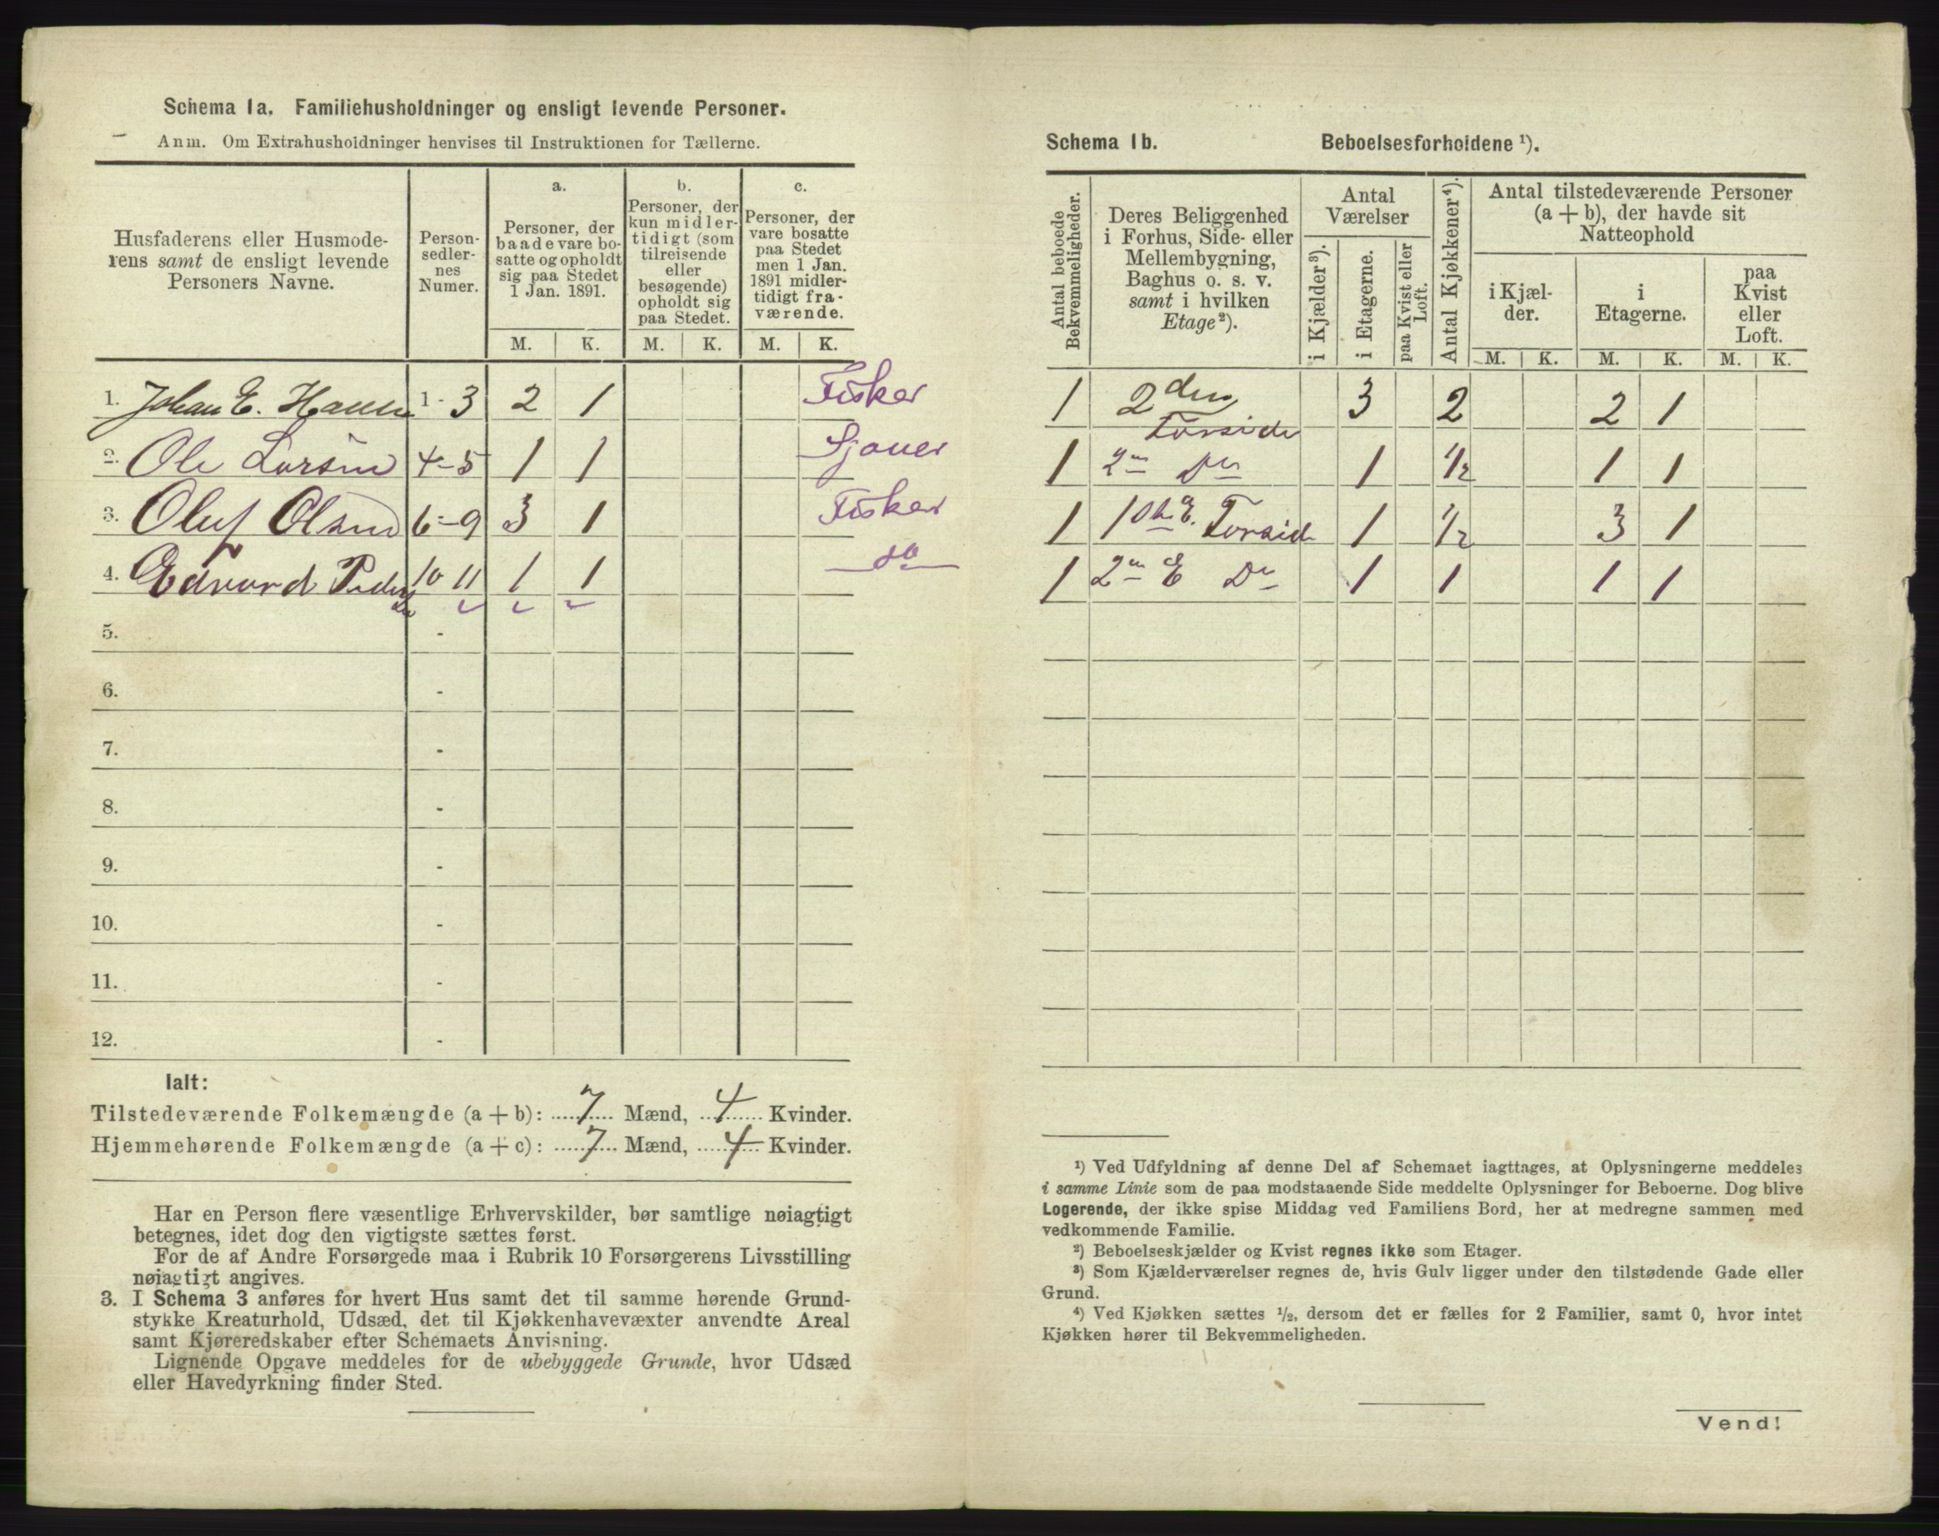 Schema 1a. Familiehusholdninger og ensligt levende Personer.
Anm. Om Extrahusholdninger henvises til Instruktionen for Tællerne.
Husfaderens eller Husmoderens samt de ensligt levende Personers Navne.
Person-sedler-nes Numer.
a.
Personer, der baade vare bosatte og opholdt sig paa Stedet 1 Jan. 1891.
b.
Personer, der kun midlertidigt (som tilreisende eller besøgende) opholdt sig paa Stedet.
c.
Personer, der vare bosatte paa Stedet men 1 Jan. 1891 midlertidigt fraværende.
M. K. M. K. M. K.
1. Johan E. Hansen 1 - 3 2 1 Fisker
2. Ole Larsen 4-5 1 1 Sjouer
3. Oluf Olsen 6-9 3 1 Fisker
4. Edvard Peder 10 11 1 1 do
5. -
6. -
7. -
8. -
9. -
10. -
11. -
12. -
Ialt:
Tilstedeværende Folkemængde (a + b): 7 Mænd, 4 Kvinder.
Hjemmehørende Folkemængde (a + c): 7 Mænd, 4 Kvinder.
Har en Person flere væsentlige Erhvervskilder, bør samtlige nøiagtigt
betegnes, idet dog den vigtigste sættes først.
For de af Andre Forsørgede maa i Rubrik 10 Forsørgerens Livsstilling
nøiagtigt angives.
3. I Schema 3 anføres for hvert Hus samt det til samme hørende Grund-
stykke Kreaturhold, Udsæd, det til Kjøkkenhavevæxter anvendte Areal
samt Kjøreredskaber efter Schemaets Anvisning.
Lignende Opgave meddeles for de ubebyggede Grunde, hvor Udsæd
eller Havedyrkning finder Sted.
Schema 1b. Beboelsesforholdene ¹).
Antal beboede Bekvemmeligheder.
Deres Beliggenhed i Forhus, Side- eller Mellembygning, Baghus o. s. v. samt i hvilken Etage²).
Antal Værelser
i Kjælder³).
i Etagerne.
paa Kvist eller Loft.
Antal Kjøkkener⁴).
Antal tilstedeværende Personer (a + b), der havde sit Natteophold
i Kjælder.
i Etagerne.
paa Kvist eller Loft.
M. K. M. K. M. K.
1 2den Forside 3 2 2 1
1 2en Do 1 1/2 1 1
1 1ste E. Forside 1 1/2 3 1
1 2en E Do 1 1 1 1
¹) Ved Udfyldning af denne Del af Schemaet iagttages, at Oplysningerne meddeles
i samme Linie som de paa modstaaende Side meddelte Oplysninger for Beboerne. Dog blive
Logerende, der ikke spise Middag ved Familiens Bord, her at medregne sammen med
vedkommende Familie.
²) Beboelseskjælder og Kvist regnes ikke som Etager.
³) Som Kjælderværelser regnes de, hvis Gulv ligger under den tilstødende Gade eller
Grund.
⁴) Ved Kjøkken sættes ½, dersom det er fælles for 2 Familier, samt 0, hvor intet
Kjøkken hører til Bekvemmeligheden.
Vend!